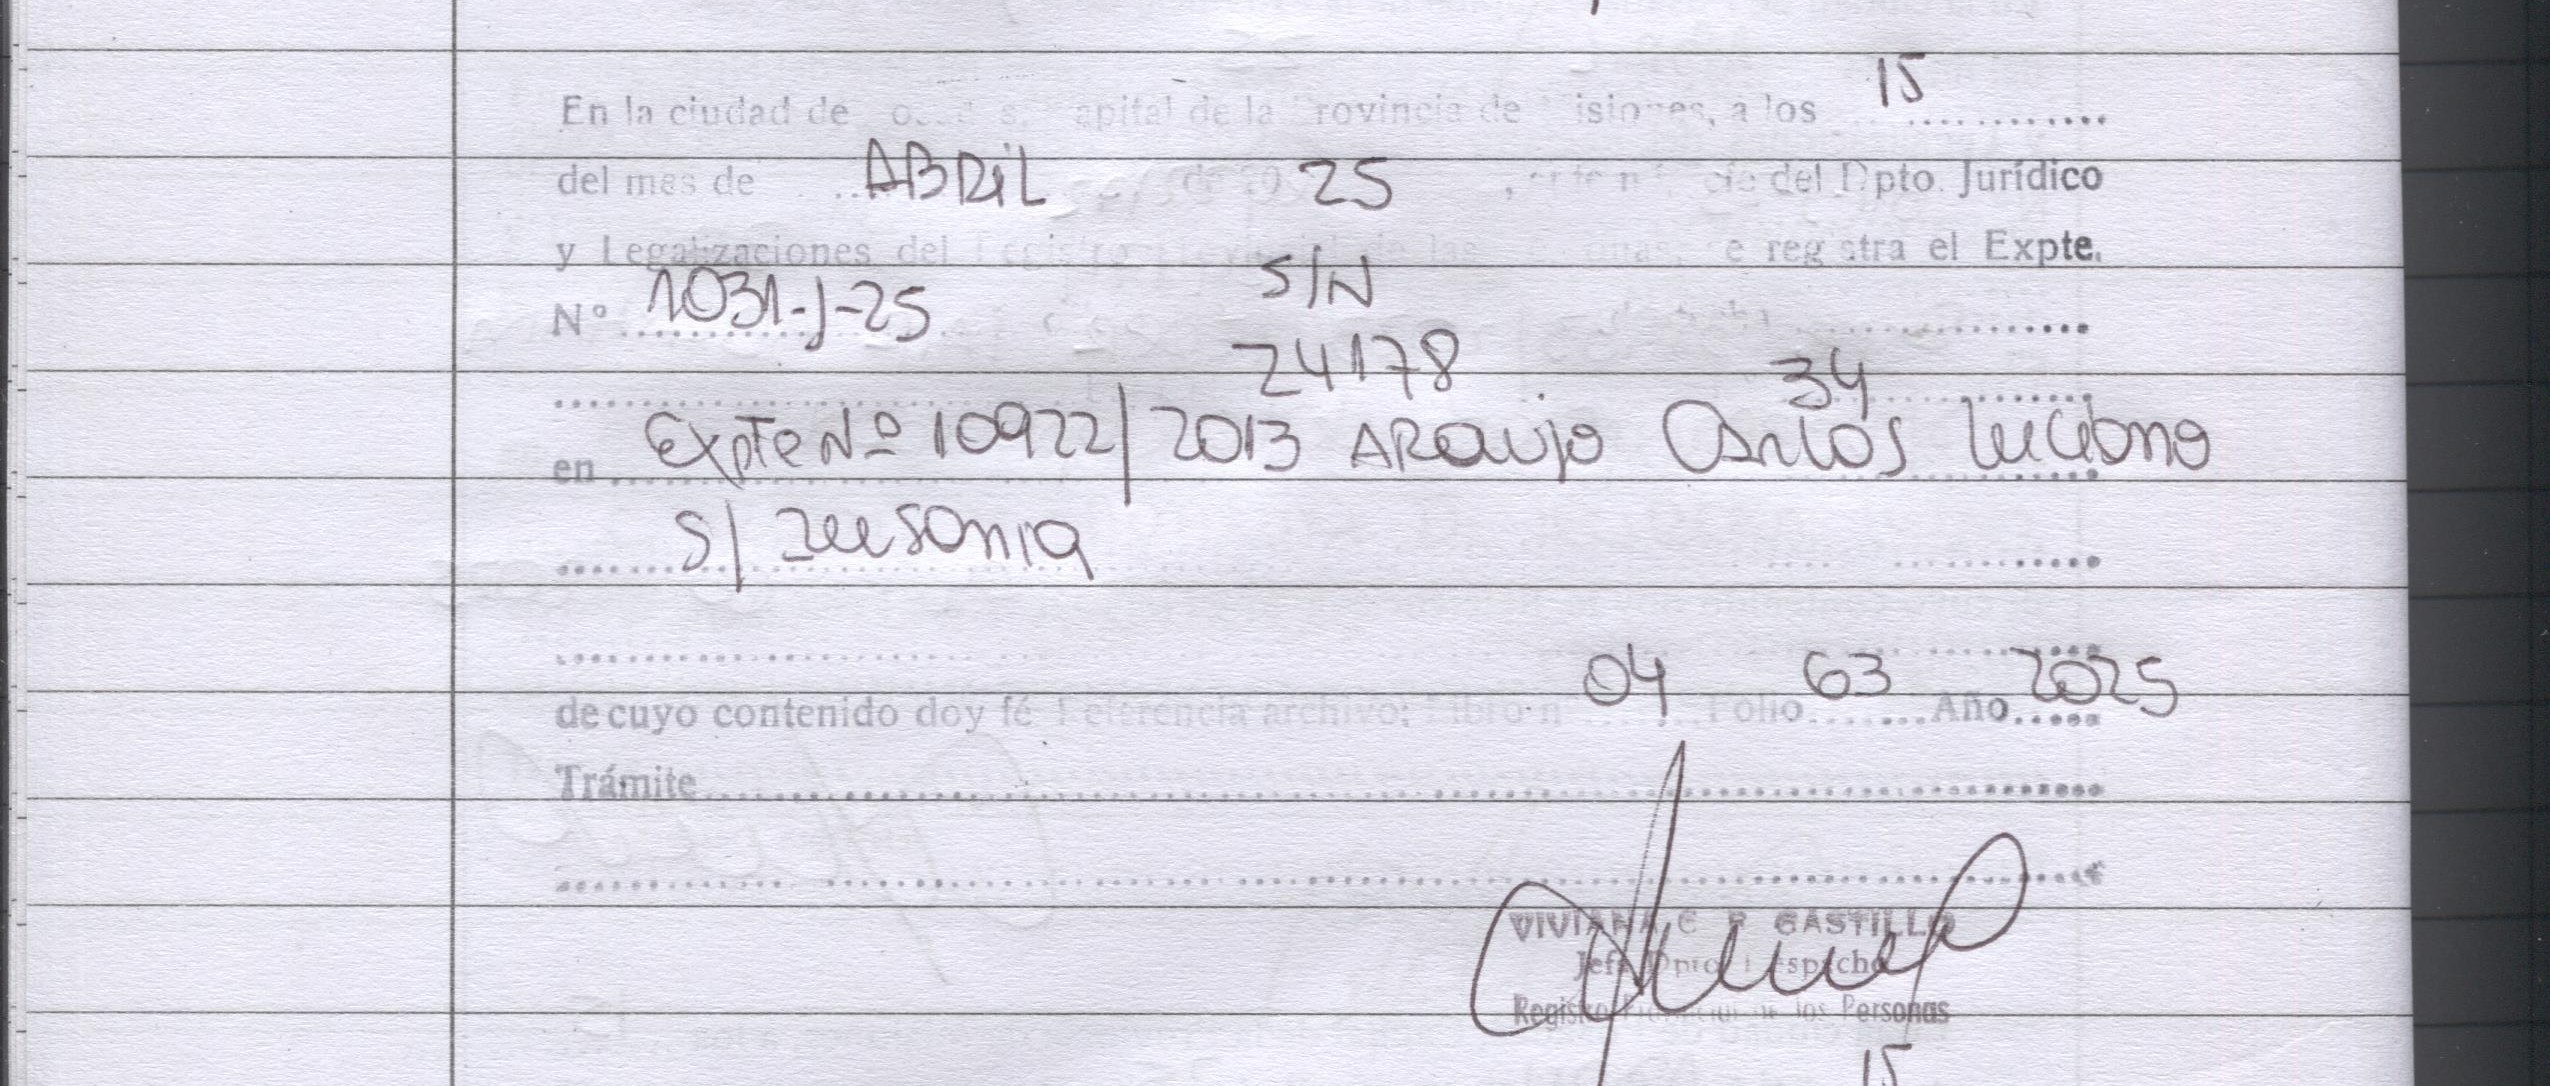 15
En la ciudad de apital de la rovincia de isiones, a los
del mes de ABRIL de 20 25 del Dpto. Jurídico
y Legalizaciones del Registro de las e registra el Expte.
Nº 1031-J-25 S/N
24178 34
en Expte Nº 10922/2013 ARAUJO Carlos Luciano
S/
04 63 2025
de cuyo contenido doy fé Referencia archivo: Libro nº Folio Año
Trámite
VIVIANA C R CASTILLO
Jefa Dpto Despacho
Registro Provincial de los Personas
15